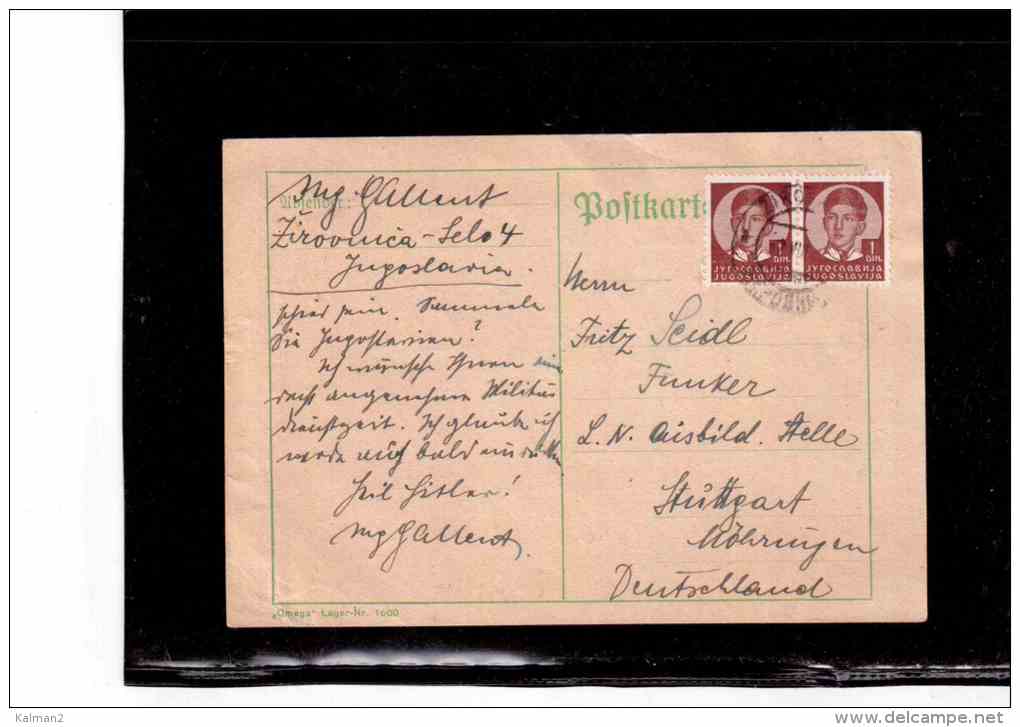 Absender:
Mg Gallent
Žirovnica - Selo 4
Jugoslavia.
sein. Sammeln
Sie
Ich wünsche Ihnen eine
recht angenehme Militär
dienstzeit. Ich glaube ich
werde auch bald
Heil Hitler!
Mg Gallent
„Omega" Lager-Nr. 1600
Postkarte
1
DIN.
ЈУГОСЛАВИЈА
JUGOSLAVIJA
1
DIN.
ЈУГОСЛАВИЈА
JUGOSLAVIJA
Herrn
Fritz Seidl
Funker
L. N. Ausbild. Stelle
Stuttgart
Möhringen
Deutschland
Kalman2
delcampe.net